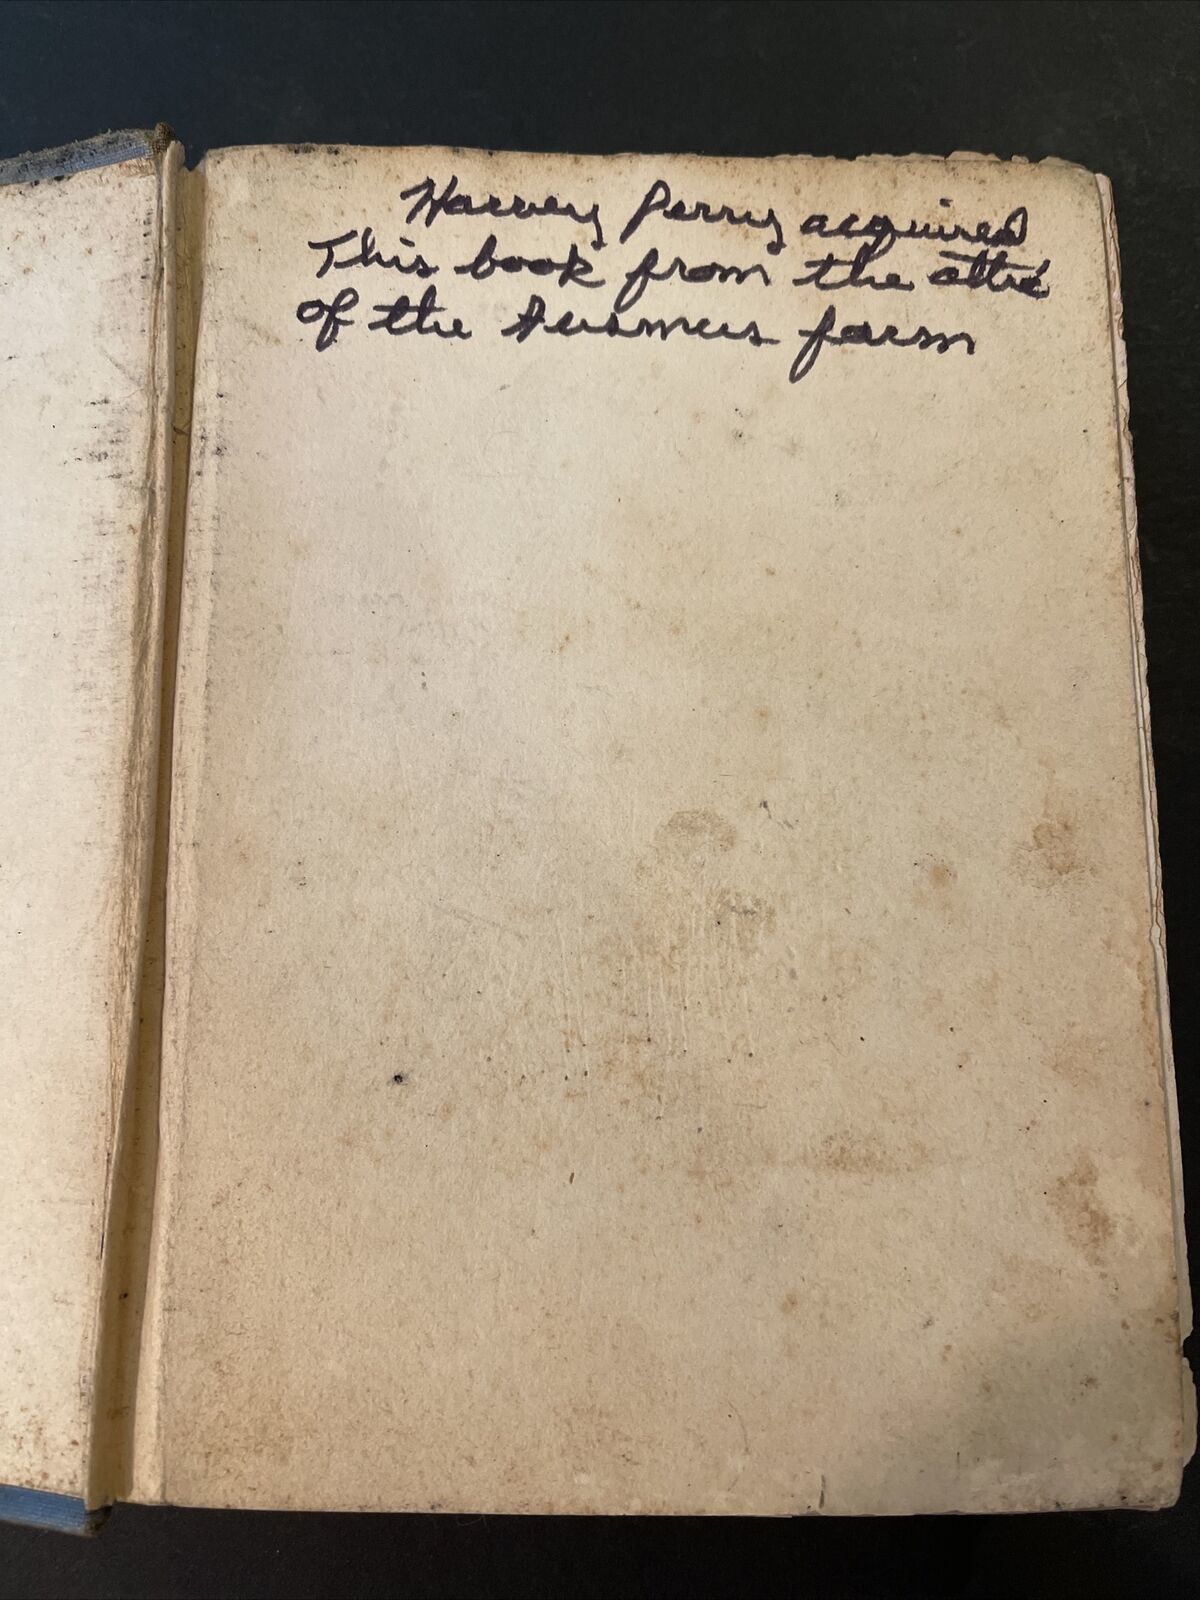 Harvey Perry acquired
This book from the attic
of the farm